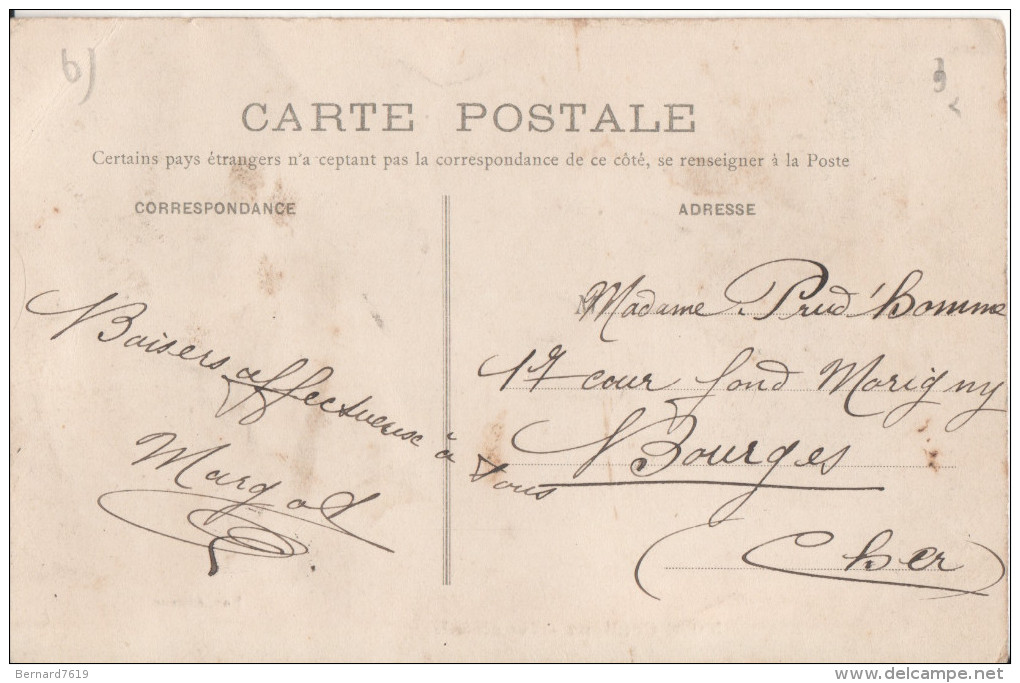 6)
CARTE POSTALE
Certains pays étrangers n'a ceptant pas la correspondance de ce côté, se renseigner à la Poste
CORRESPONDANCE
Baisers affectueuse à tous
Margot
ADRESSE
Madame Prud'homme
cour fond Marigny
Bourges
(Cher)
Bernard7619
www.delcampe.net